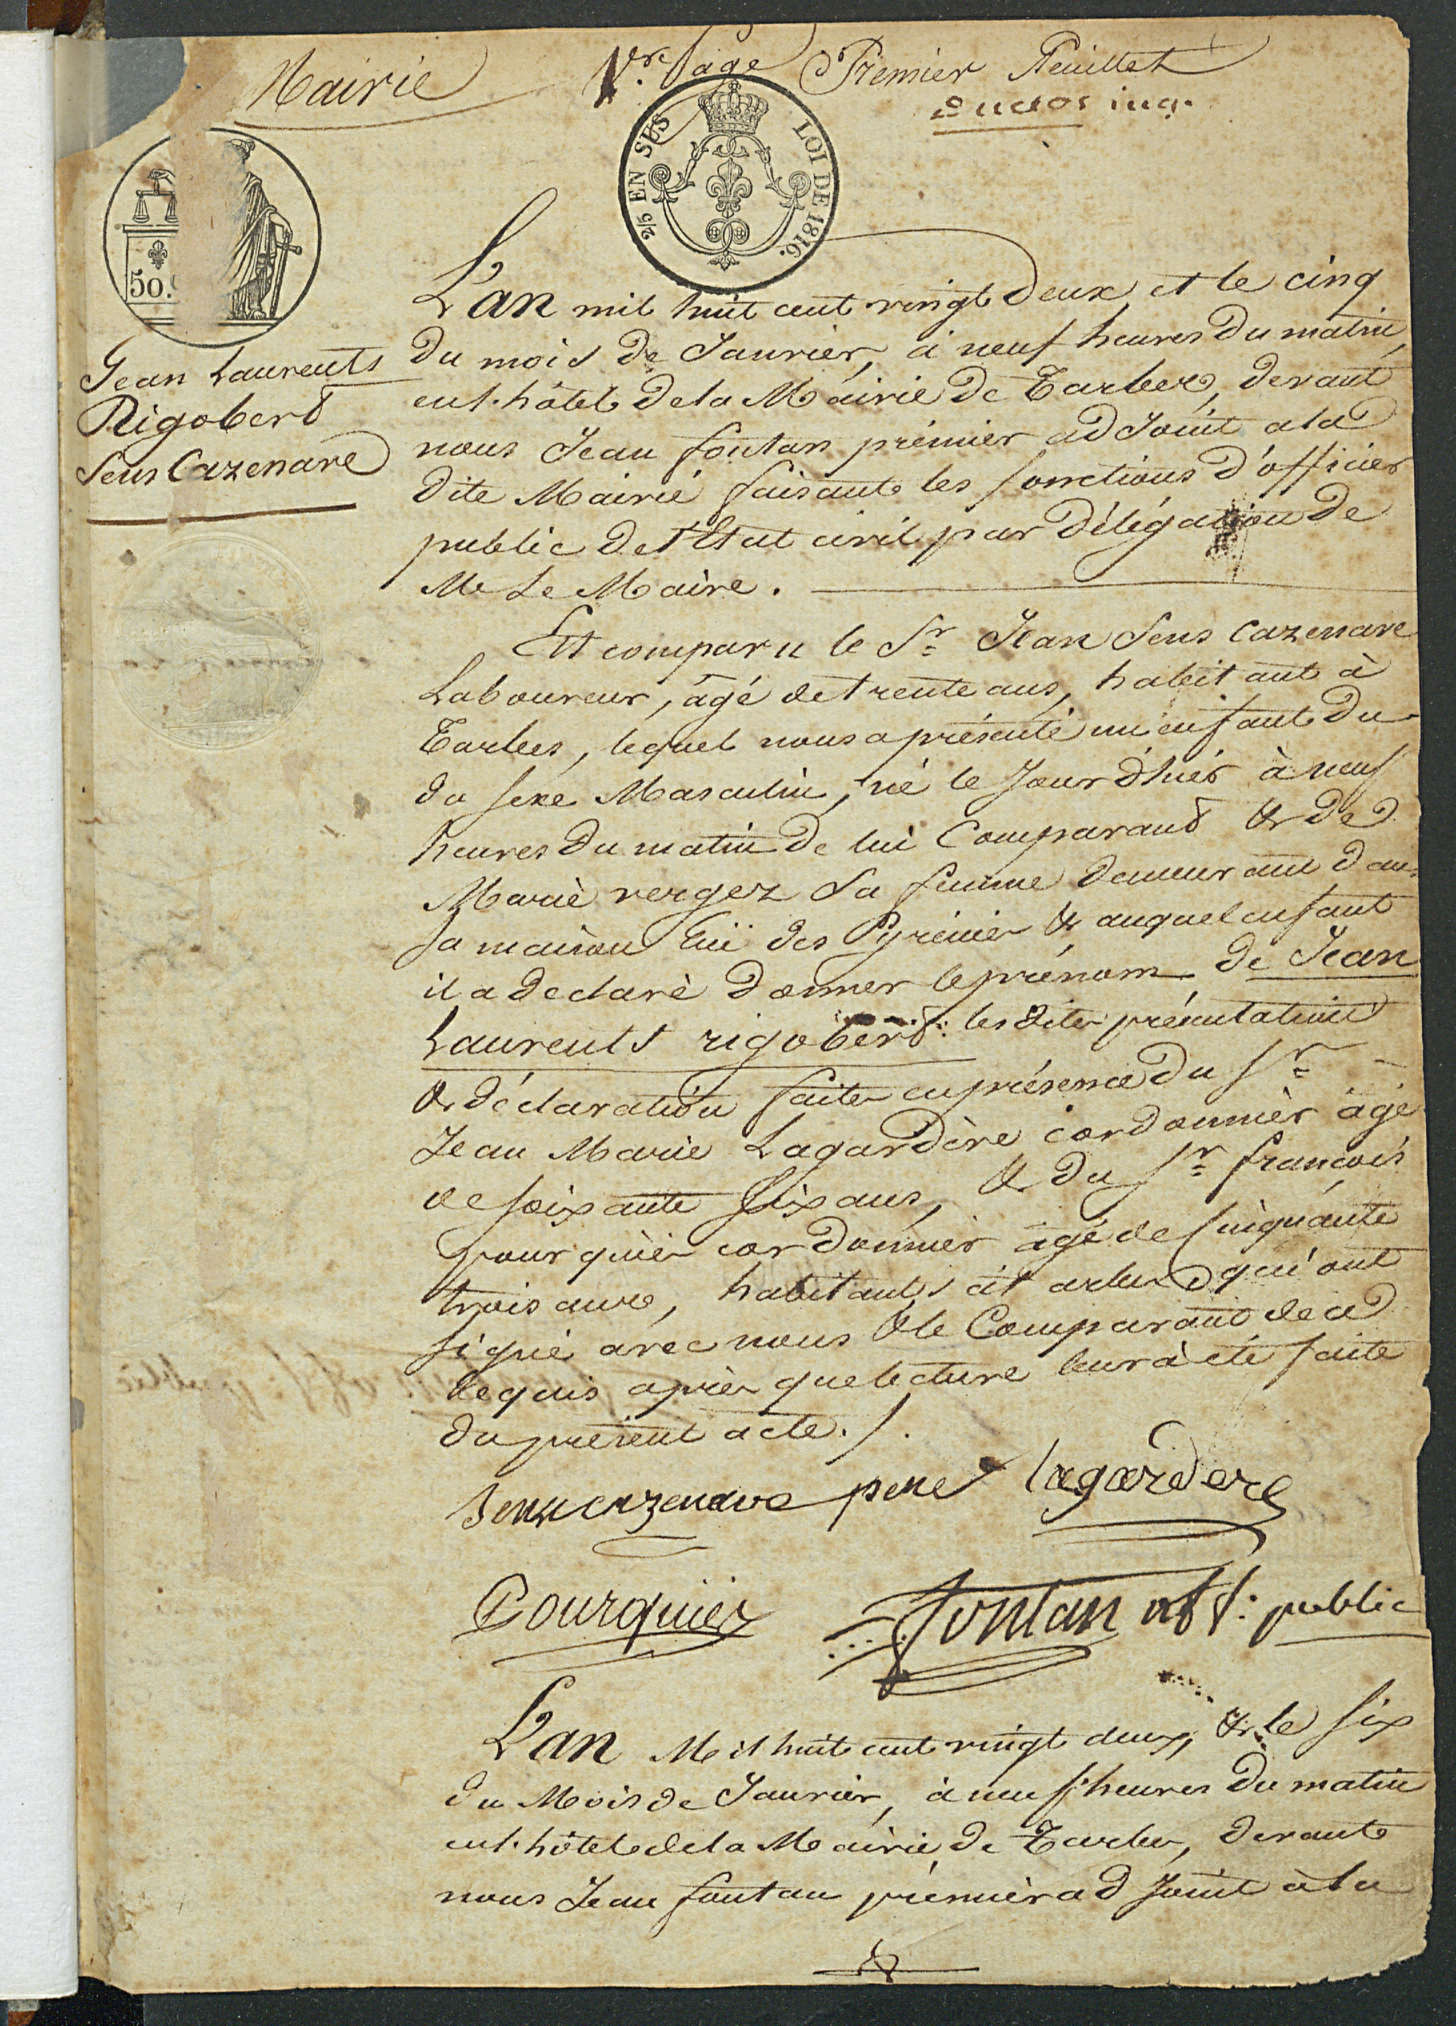 Mairie 1ere Page Premier Feuillet
2/5 EN SUS LOI DE 1816.
50.
Jean Laurents
Rigobert
Sens Cazenave
L'an mil huit cent vingt deux et le cinq
du mois de Janvier, à neuf heures du matin,
en l'hôtel de la Mairie de Tarbes, devant
nous Jean fontan prémier adjoint a la
dite Mairie faisant les fonctions d'officier
public de l'Etat civil par délégation de
Mr Le Maire.
Est comparu le Sr Jean Sens Cazenave
Laboureur, âgé de trente ans, habitant à
Tarbes, lequel nous a présenté un enfant du
du sexe Masculin, né le Jour d'hiér à neuf
heures du matin de lui Comparant & de
Marie vergez Sa femme demeurant dans
sa maison Ruë des Pyrénées & auquel enfant
il a declaré donner le prénom de Jean
Laurents rigobert: lesdites présentation
& déclaration faites en présence du Sr
Jean Marie Lagardère cordonnièr âgé
de soixante six ans, & du Sr françois
pourquiér cordonnier âgé de cinquante
trois ans, habitants à tarbes qui ont
signé avec nous & le Comparant de ce
requis après que lecture leur à été faite
du présent acte./.
Senscazenave pere lagardere
Pourquier fontan off: public
L'an Mil huit cent vingt deux, & le six
du Mois de Janvier, à neuf heures du matin
en l'hôtel de la Mairie de Tarbes, devant
nous Jean fontan prémièr adjoint à la